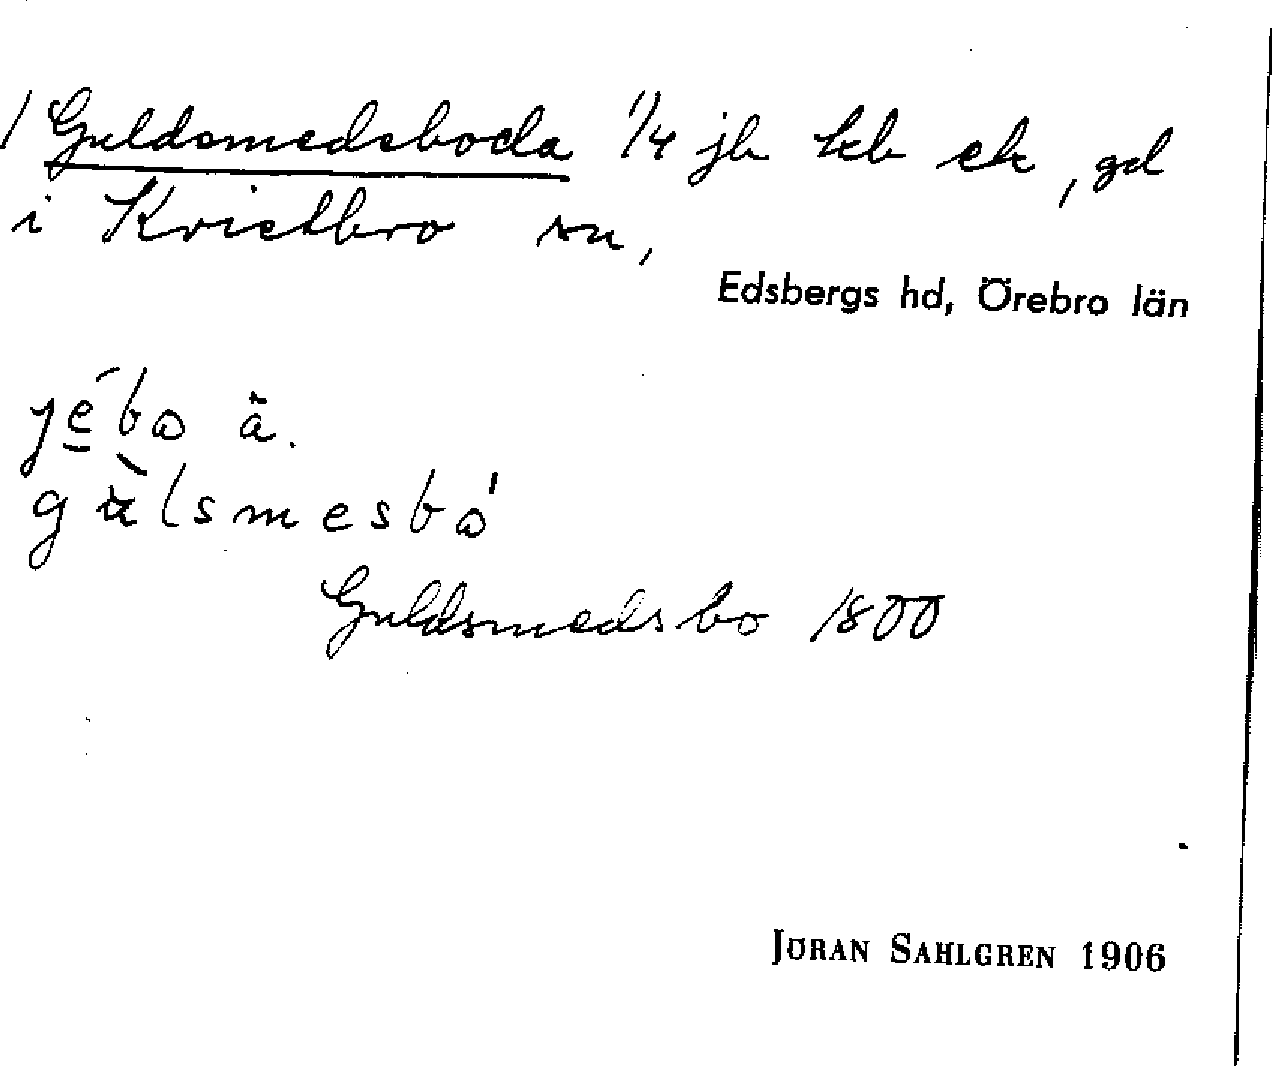 Guldsmedsboda 1/4 jb kb ek, gd
i Kvistbro sn,
Edsbergs hd, Örebro län
jébo ä.
gùlsmesbó
Guldsmedsbo 1800
JÖRAN SAHLGREN 1906